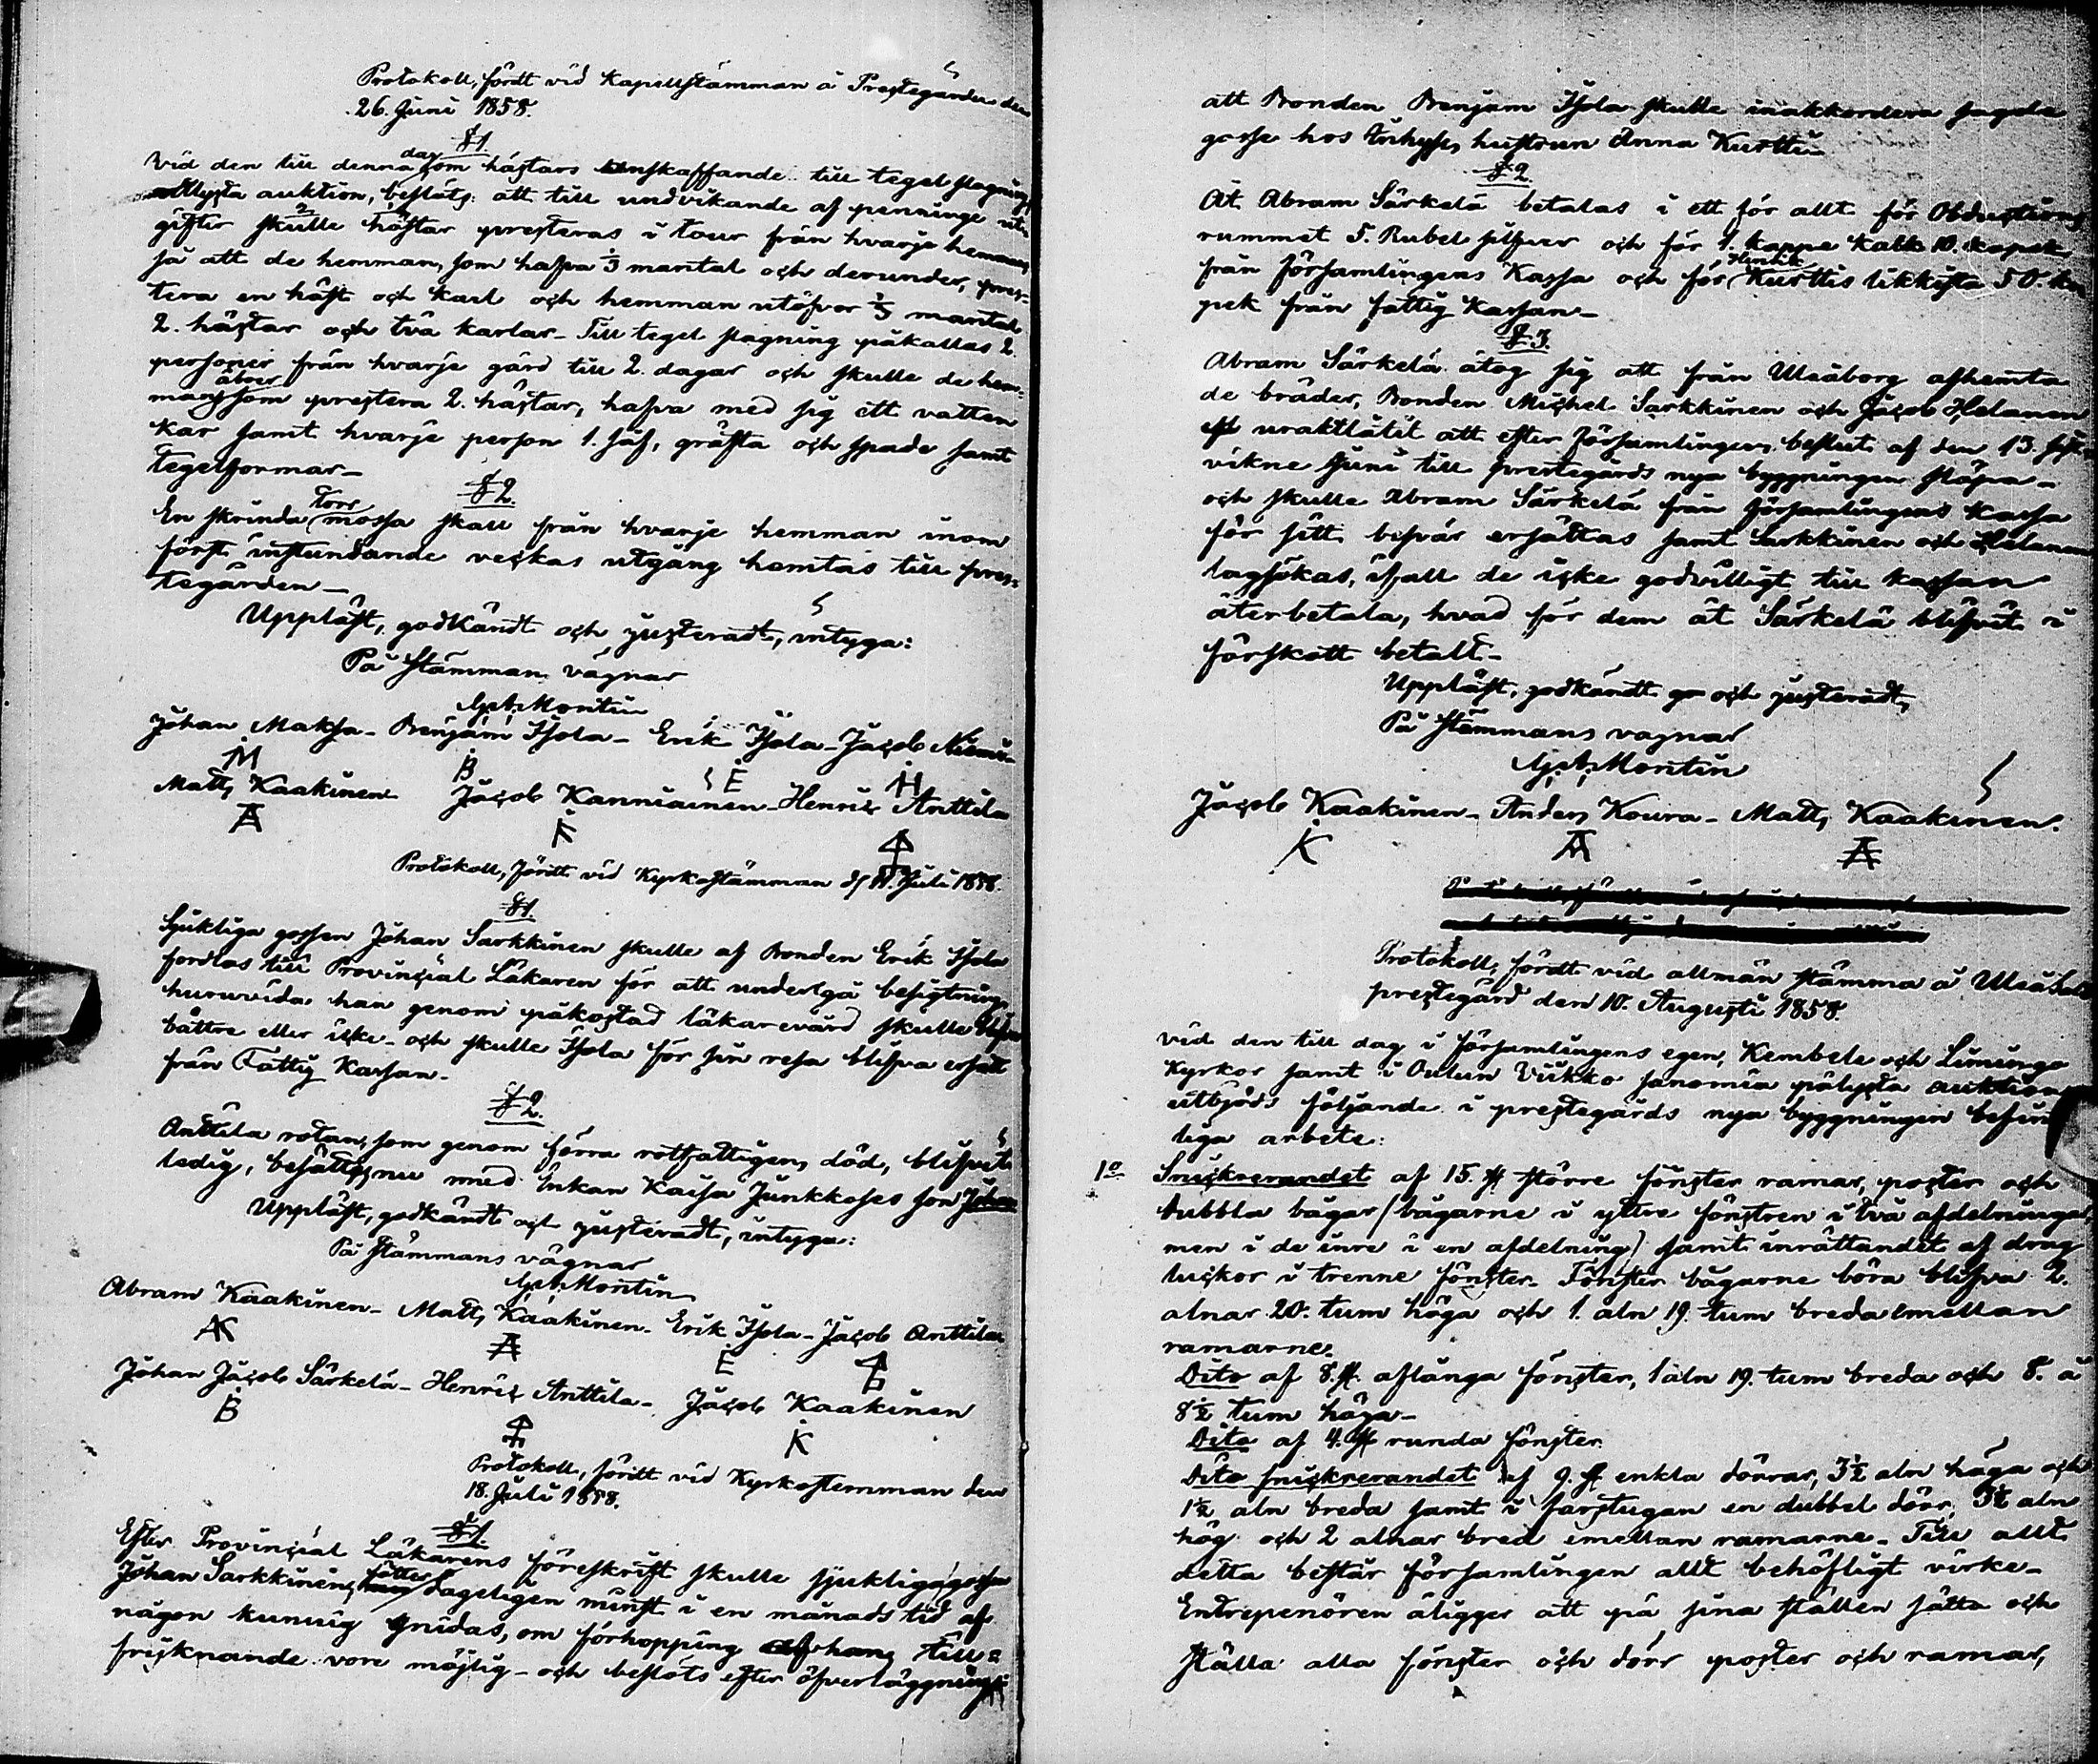 Protokoll, fördt vid Kapellstämman å Prestegården den
26. Juni 1858.
§ 1.
Vid den till denna dag om hästars anskaffande till tegel slagning
utlysta auktion, beslöts: att till undvikande af penninge ut-
gifter skulle 2 hästar presteras i tour från hvarje hemman,
så att de hemman, som hafva 1/3 mantal och derunder, pres-
tera en häst och karl och hemman utöfver 1/3 mantal
2. hästar och två karlar_ Till tegel slagning påkallas 2.
personer från hvarje gård till 2. dagar och skulle de hem-
mans åboer som prestera 2. hästar, hafva med sig ett vatten
kar samt hvarje person 1. såf, gräfta och spade samt
tegelformar_
§ 2.
En skrinda torr mossa skall från hvarje hemman inom
först instundande veckas utgång hemtas till pres-
tegården_
Uppläst, godkändt och justeradt, intyga:
På Stämmans vägnar
G. A. Montin
Johan Maksa_ Benjam Isola_ Erik Isola_ Jacob Niemi_
M B E H
Matts Kaakinen Jacob Kanniainen_ Henric Anttila
A K
Protokoll, fördt vid Kyrkostämman d. 11. Juli 1858.
§ 1.
Sjukliga gossen Johan Sarkkinen skulle af Bonden Erik Isola
fordlas till Provincial Läkaren för att undergå besigtning,
huruvida han genom påkostad läkarevård skulle blifva
bättre eller icke_ och skulle Isola för sin resa blifva ersatt
från Fattig Kassan_
§ 2.
Anttila rotan, som genom förra rotfattigens död, blifvit
ledig, besättes nu med Enkan Kaisa Junkkoses son Johan
Uppläst, godkändt och justeradt, intyga:
På Stämmans vägnar
G. A. Montin
Abram Kaakinen_ Matts Kaakinen_ Erik Isola_ Jacob Anttila
AK A E
Johan Jacob Särkelä_ Henric Anttila_ Jacob Kaakinen
B K
Protokoll, fördt vid Kyrkostemman den
18. Juli 1858.
§ 1.
Efter Provincial Läkarens föreskrift skulle sjukliga gossen
Johan Sarkkinens fötter dageligen minst i en månads tid af
någon kunnig gnidas, om förhopping af hans till-
frisknande vore möjlig_ och beslöts efter öfverläggning
att Bonden Benjam Isola skulle inakkordera sagde
gosse hos Inhyses hustrun Anna Kurtti_
§ 2.
Åt Abram Särkelä betalas i ett för allt för Obductions
rummet 5. Rubel silfver och för 1. kappe kalk 10. kopek
från församlingens Kassa och för Henrik Kurttis likkista 50. ko
pek från fattig Kassan_
§ 3.
Abram Särkelä åtog sig att från Uleåborg afhemta
de bräder, Bonden Michel Sarkkinen och Jacob Helanen
uraktlåtit att efter församlingens beslut af den 13. sist-
vikne Juni till prestegårds nya byggningen släpa_
och skulle Abram Särkelä från församlingens kassa
för sitt besvär ersättas samt Sarkkinen och Helanen
lagsökas, ifall de icke godvilligt till kassan
återbetala, hvad för dem åt Särkelä blifvit i
förskott betalt_
Uppläst, godkändt och justeradt,
På Stämmans vägnar
G. A. Montin
Jacob Kaakinen_ Anders Koura_ Matts Kaakinen.
K A A
Protokoll, fördt vid allmän stämma å Uleåsalo
prestegård den 10. Augusti 1858.
Vid den till dag i församlingens egen, Kembele och Limingo
Kyrkor samt i Oulun Viikko sanomia pålysta auktion
utbjöds följande i prestegårds nya byggningen befin-
liga arbete:
1o Snickrerandet af 15. st större fönster ramar, poster och
dubbla bågar (bågarne i yttre fönstren i två afdelningar
men i de inre i en afdelning) samt inrättandet af drag
luckor i trenne fönster_ Fönster bågarne böra blifva 2.
alnar 20. tum höga och 1. aln 19. tum breda emellan
ramarne.
Dito af 8. st. aflånga fönster, 1 aln 19. tum breda och 8. à
8 1/2 tum höga_
Dito af 4. st runda fönster.
Dito snickrerandet af 9. st enkla dörrar, 3 1/2 aln höga och
1 1/2 aln breda samt i farstugan en dubbel dörr, 3 1/2 aln
hög och 2 alnar bred emellan ramarne_ Till allt
detta består församlingen allt behöfligt virke_
Entrepenören åligger att på sina ställen sätta och
ställa alla fönster och dörr poster och ramar,